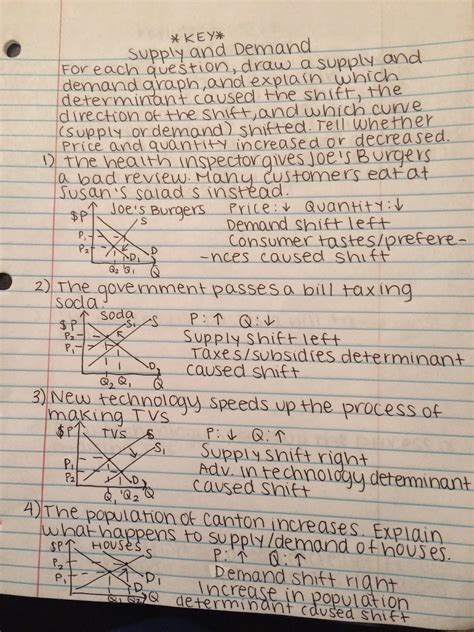 *KEY*
Supply and Demand
For each question, draw a supply and
demand graph, and explain which
determinant caused the shift, the
direction of the shift, and which curve
(supply or demand) shifted. Tell whether
Price and quantity increased or decreased.
1) The health inspector gives Joe's Burgers
a bad review. Many customers eat at
Susan's salads instead.
$P Joe's Burgers Price: ↓ Quantity: ↓
S Demand shift left
P₁ Consumer tastes/prefere-
P₂ D -nces caused shift
D₁
Q₂ Q₁ Q
2) The government passes a bill taxing
soda.
$P soda P: ↑ Q: ↓
P₂ S₁ S Supply shift left
P₁ Taxes/subsidies determinant
D caused shift
Q₂ Q₁ Q
3) New technology speeds up the process of
making TVs
$P TVs S P: ↓ Q: ↑
S₁ Supply shift right
P₁ Adv. in technology determinant
P₂ D caused shift
Q₁ Q₂ Q
4) The population of Canton increases. Explain
what happens to supply/demand of houses.
$P HOUSES S P: ↑ Q: ↑
P₂ Demand shift right
P₁ D₁ Increase in population
D determinant caused shift
Q₁ Q₂ Q